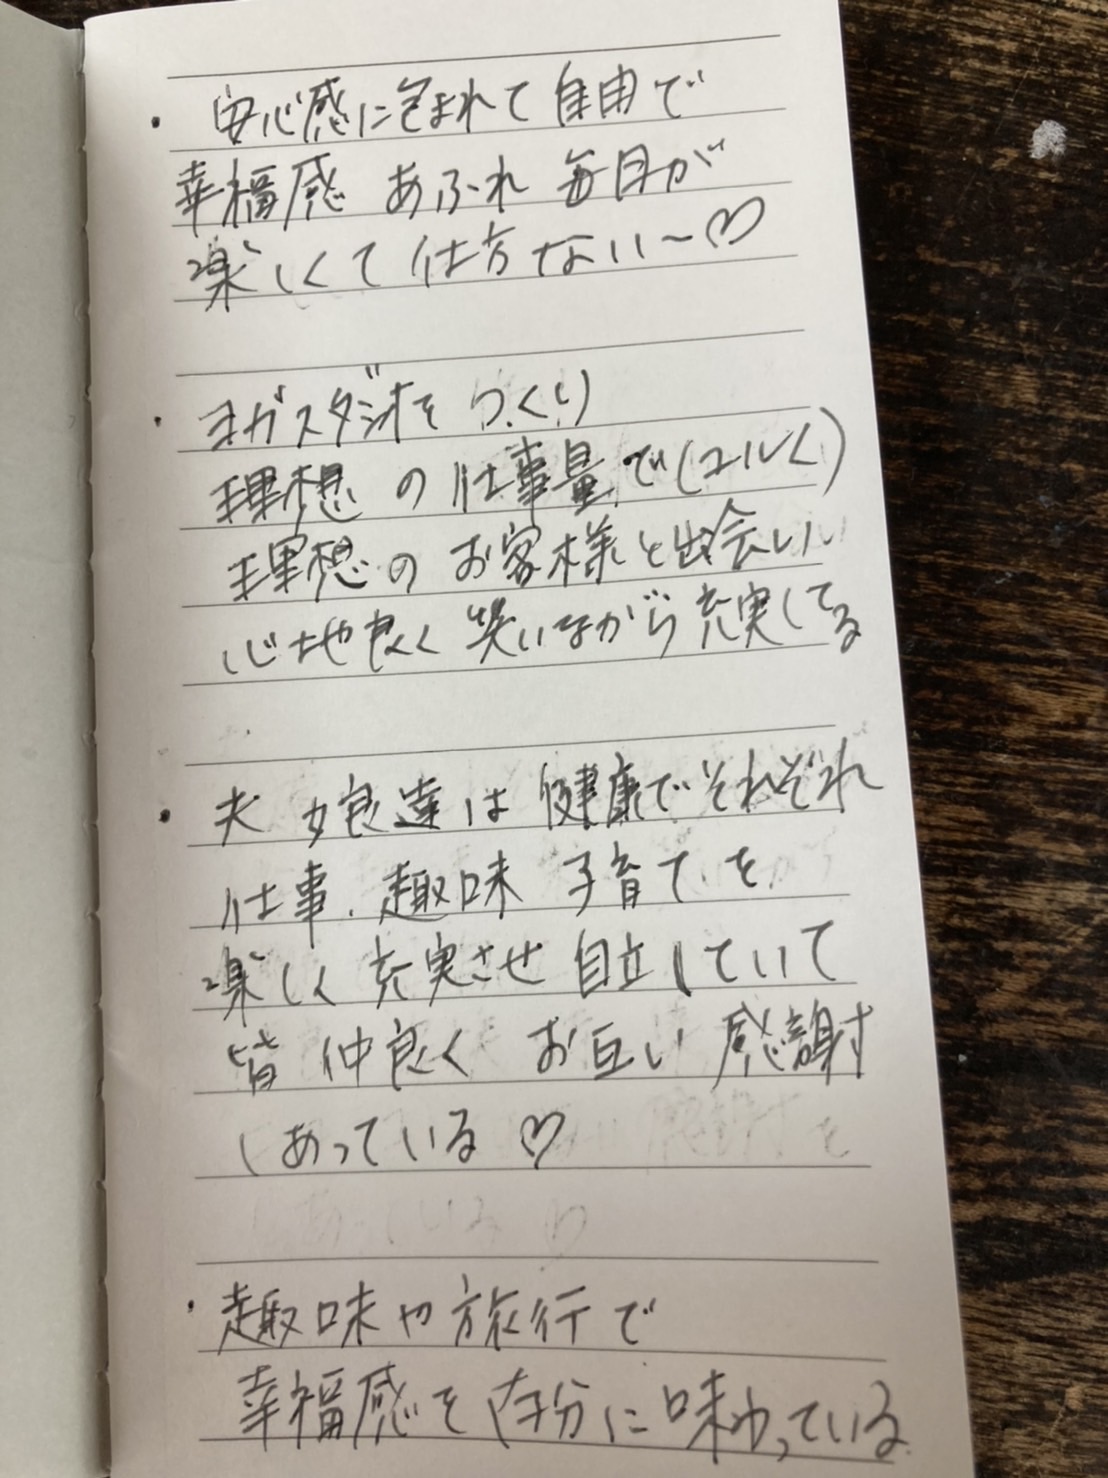 ・安心感に包まれて自由で
幸福感 あふれ 毎日が
楽しくて仕方ない〜♡
・ヨガスタジオをつくり
理想の仕事量で(ユルく)
理想のお客様と出会い
心地良く笑いながら充実してる
・夫 娘達は健康でそれぞれ
仕事、趣味 子育てを
楽しく充実させ自立していて
皆仲良く お互い感謝
しあっている♡
・趣味や旅行で
幸福感を存分に味わっている